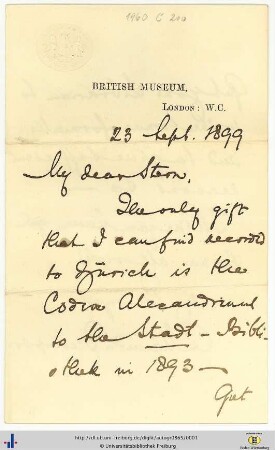 1960 C 210
BRITISH MUSEUM,
LONDON: W.C.
23 Sept. 1899
My dear Stern,
The only gift
that I can find recorded
to Zürich is the
Codex Alexandrinus
to the Stadt-Bibli-
othek in 1893 —
© Universitätsbibliothek Freiburg